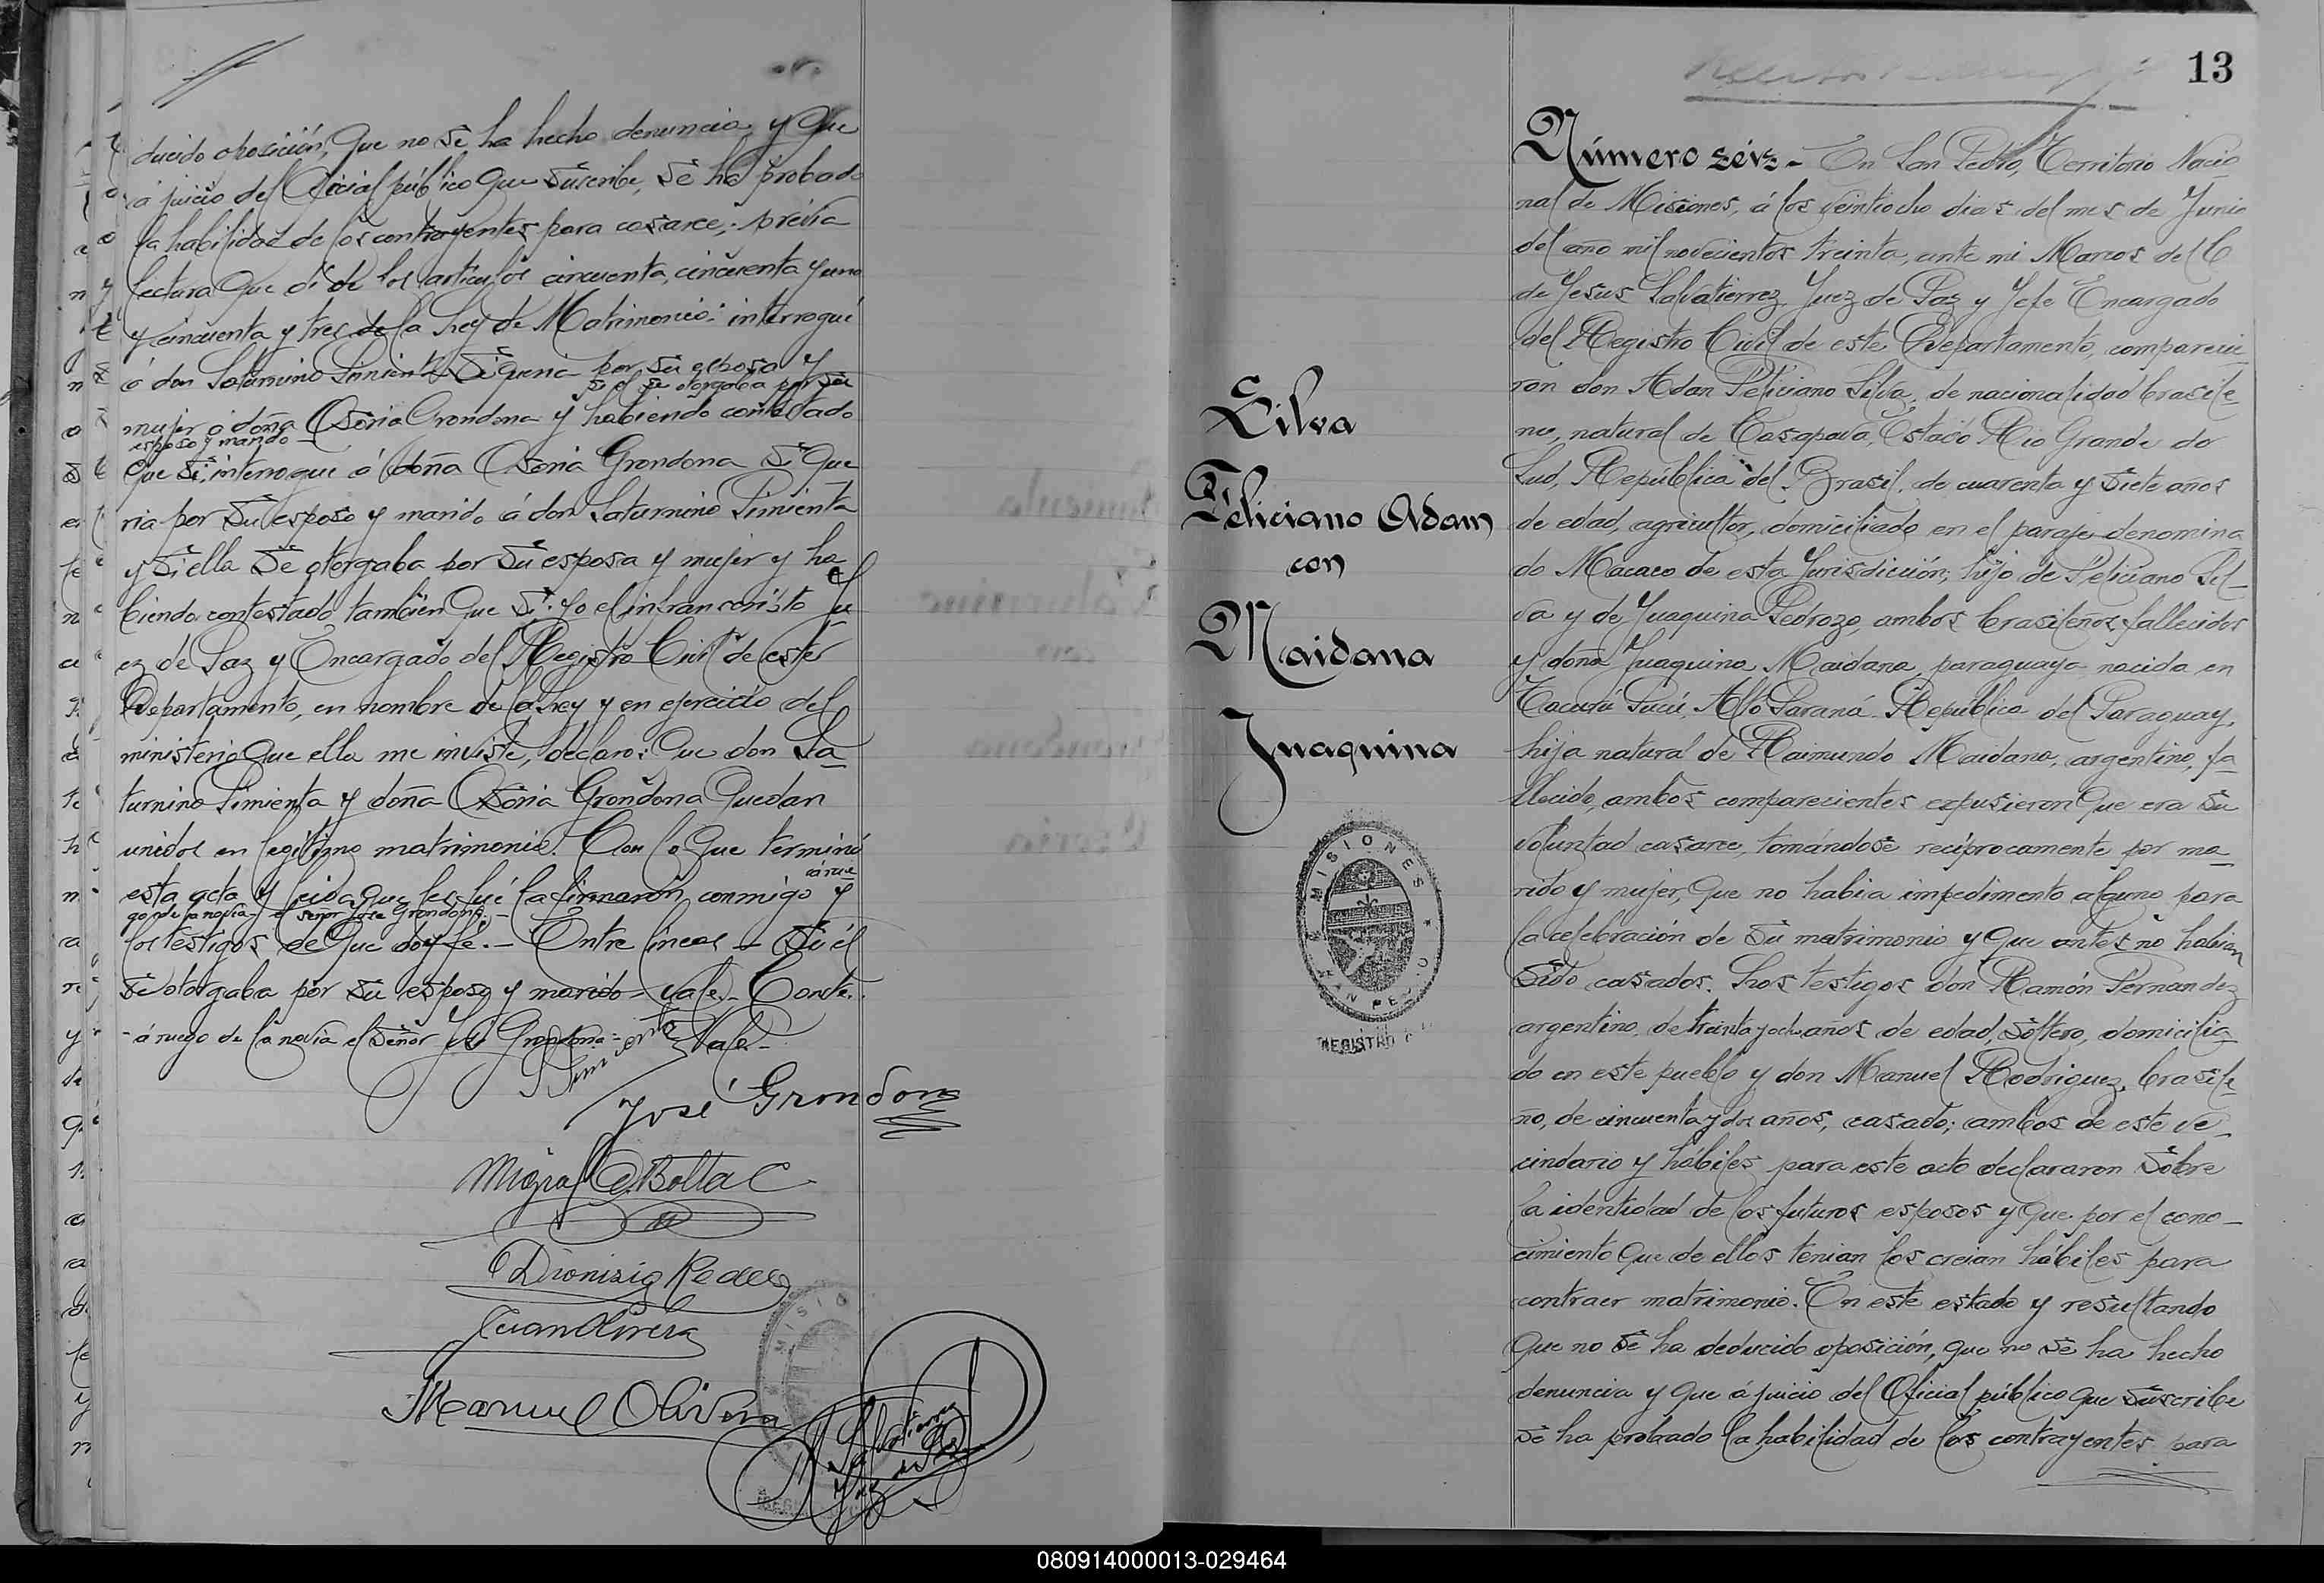 ducido oposición, que no se ha hecho denuncia y que
á juicio del Oficial público que suscribe, se ha probado
la habilidad de los contrayentes para casarce; prévia
lectura que dí de los articulos cincuenta, cincuenta y uno
y cincuenta y tres de la Ley de Matrimonio: interrogué
á don Saturnino Pimienta si queria por su esposa y
si el se otorgaba por su
mujer á doña Osoria Grondona y habiendo contestado
esposo y marido
que si, interrogué á doña Osoria Grondona si que
ria por su esposo y marido á don Saturnino Pimienta
y si ella se otorgaba por su esposa y mujer y ha
biendo contestado también que si. Yo el infranscristo Ju
ez de Paz y Encargado del Registro Civil de este
Departamento, en nombre de la Ley y en ejercicio del
ministerio que ella me inviste, declaro: Que don Sa
turnino Pimienta y doña Osoria Grondona quedan
unidos en legítimo matrimonio. Con lo que terminó
esta acta y leida que les fué la firmaron conmigo y
á rue
go de la novia el señor José Grondona.-
los testigos de que doy fé.- Entre líneas - si él
se otorgaba por su esposo y marido - vale.- Conste.
- á ruego de la novia el Señor José Grondona = Vale.-
S Pimienta
José Grondona
Dionisio
Juan Olivera
Manuel Olivera
M Salvatierrez
Juez de Paz
MISIONES
13
Número séis - En San Pedro, Territorio Nacio
nal de Misiones, á los veintiocho dias del mes de Junio
del año mil novecientos treinta, ante mi Marcos del C
de Jesus Salvatierrez Juez de Paz y Jefe Encargado
del Registro Civil de este Departamento, comparecie
ron don Adan Feliciano Silva, de nacionalidad brasile
na, natural de Casapava, Estado Rio Grande do
Sud, República del Brasil, de cuarenta y siete años
de edad, agricultor, domiciliado en el paraje denomina
do Macaco de esta Jurisdicción; hijo de Feliciano Sil-
va y de Juaquina Pedrozo, ambos brasileños fallecidos
y doña Juaquina Maidana, paraguaya nacida en
Tacurú Pucú, Alto Paraná. República del Paraguay,
hija natural de Raimundo Maidana, argentino, fa
llecido, ambos comparecientes expusieron que era su
voluntad casarce, tomándose recíprocamente por ma
rido y mujer, que no habia impedimento alguno para
la celebración de su matrimonio y que antes no habian
sido casados. Los testigos don Ramón Fernandez
argentino, de treinta y ocho años de edad, soltero, domicilia
do en este pueblo y don Manuel Rodriguez, brasile
ño, de cincuenta y dos años, casado; ambos de este ve-
cindario y hábiles para este acto declararon sobre
la identidad de los futuros esposos y que por el cono-
cimiento que de ellos tenian los creian hábiles para
contraer matrimonio. En este estado y resultando
que no se ha deducido oposición, que no se ha hecho
denuncia y que á juicio del Oficial público que suscribe
se ha probado la habilidad de los contrayentes para
Silva
Feliciano Adam
con
Maidana
Juaquina
MISIONES
SAN PEDRO
REGISTRO
080914000013-029464